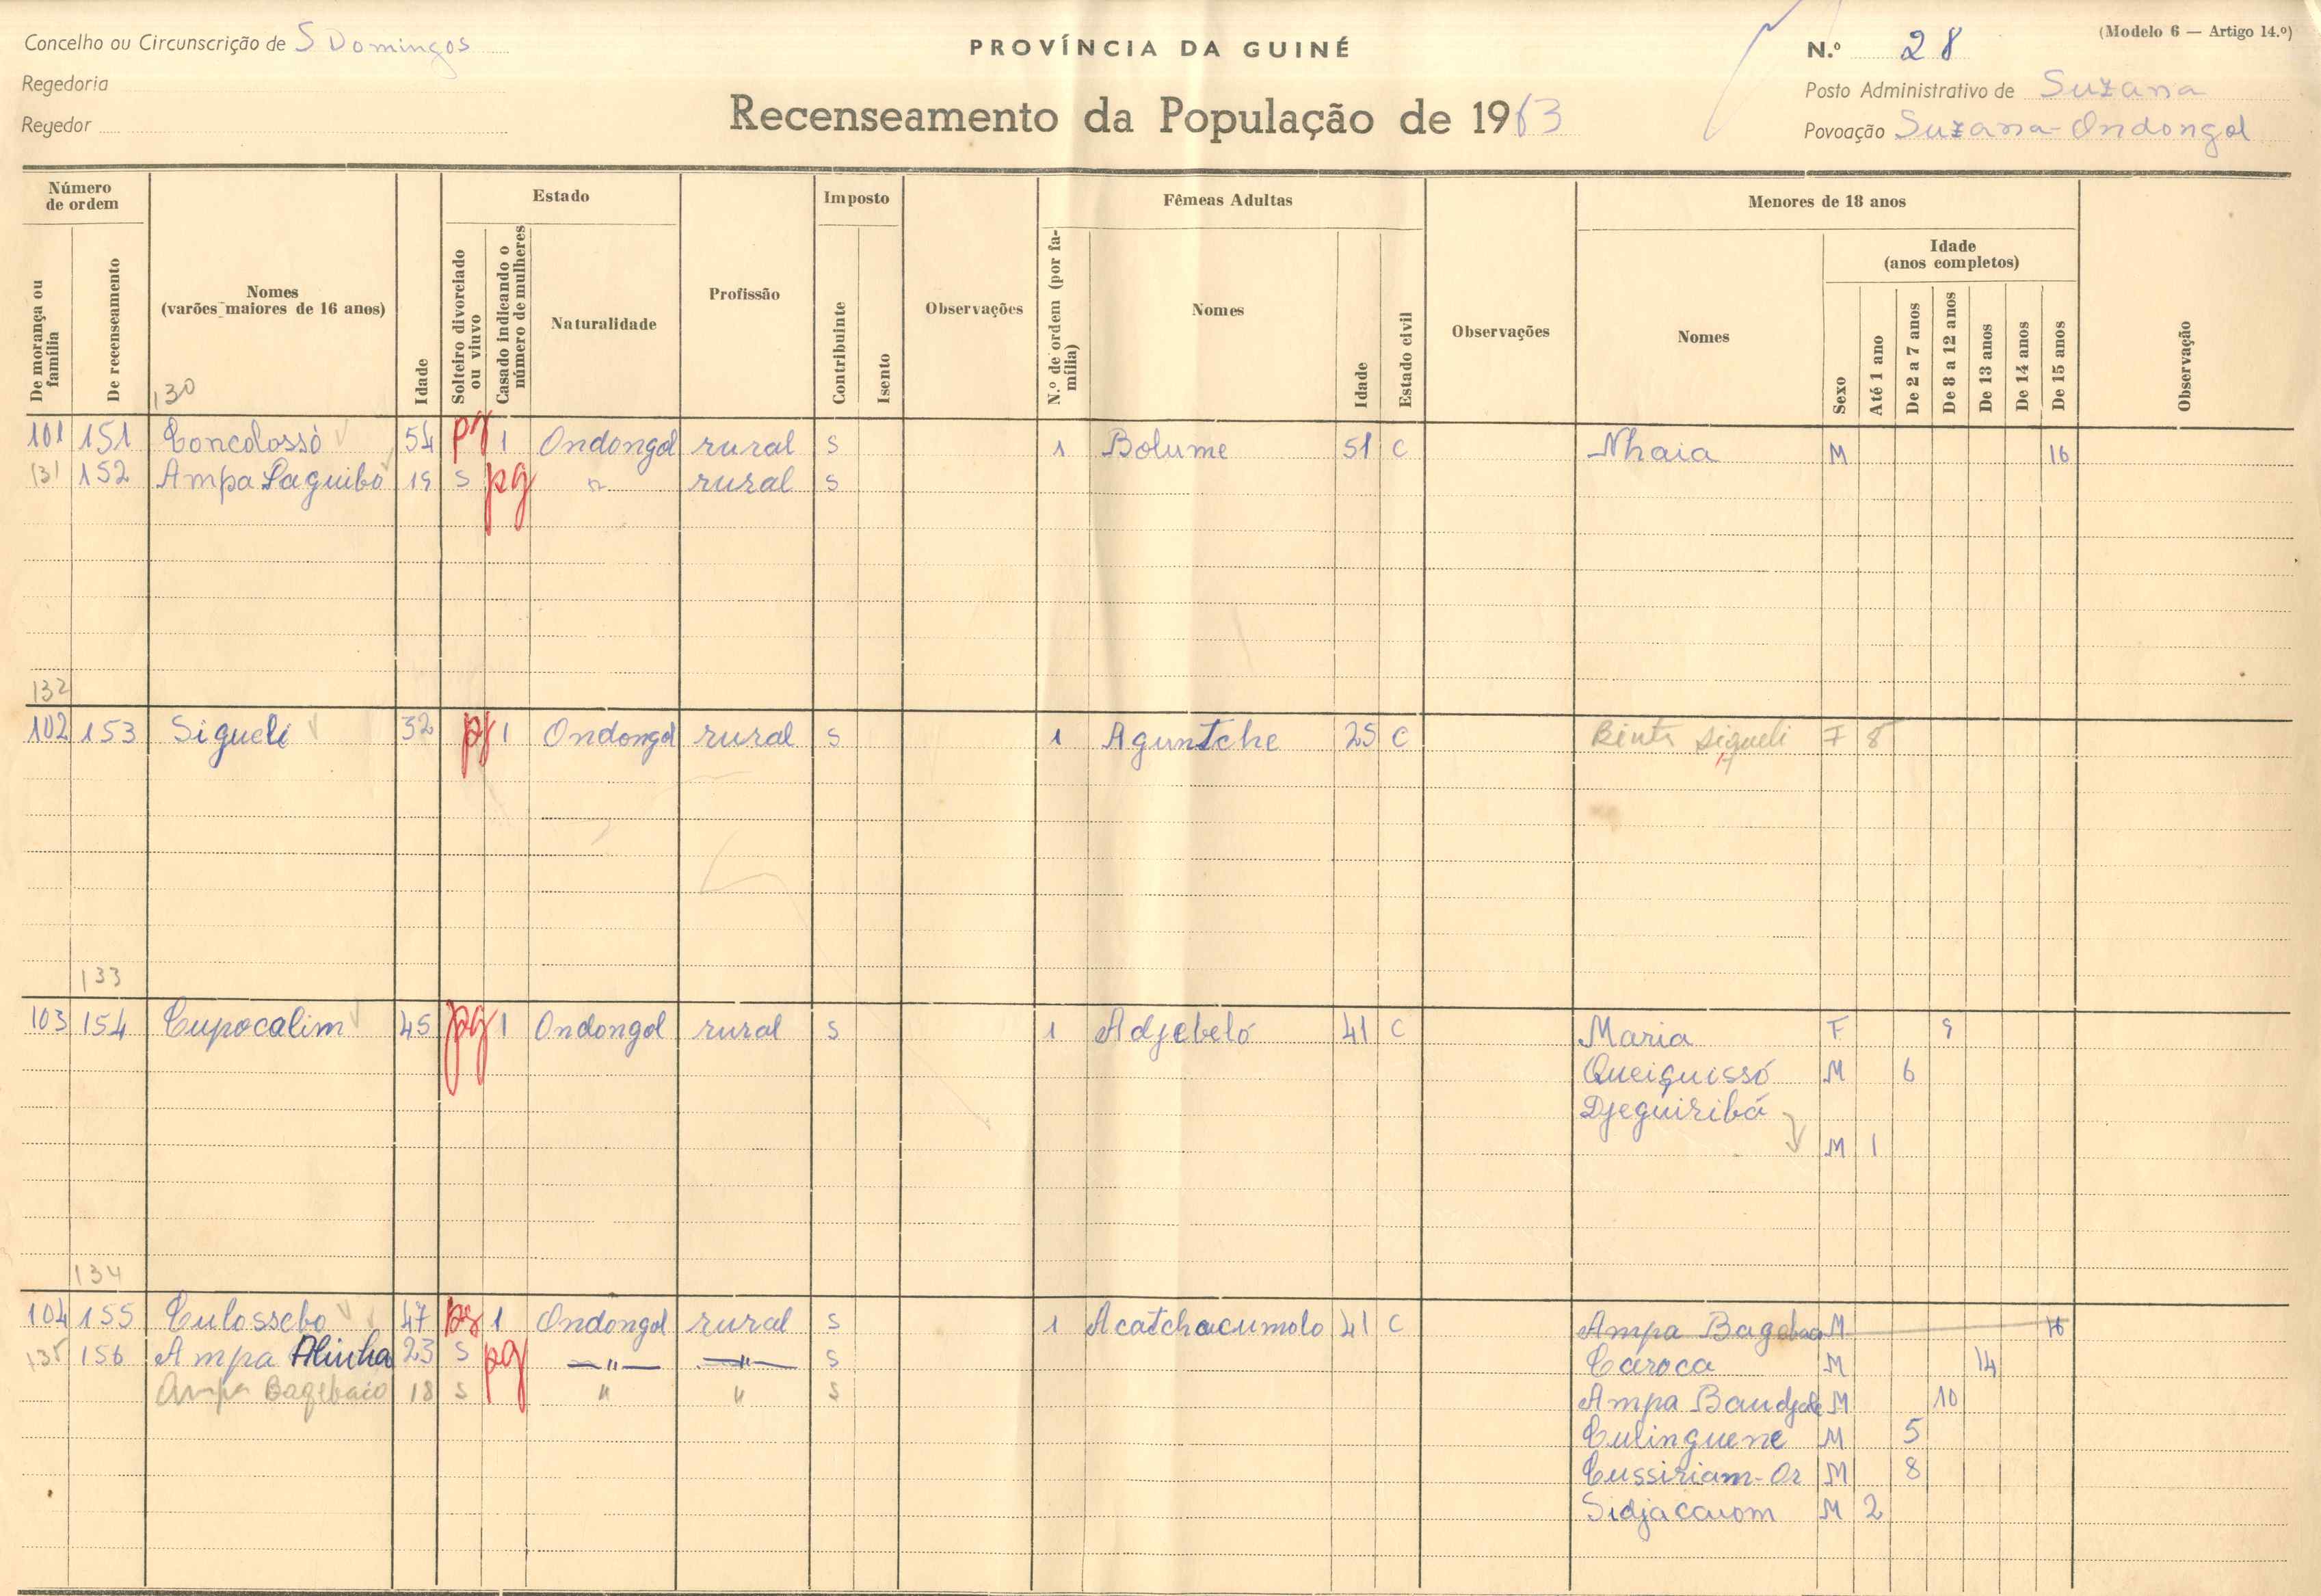 Concelho ou Circunscrição de S Domingos
Regedoria
Regedor
PROVÍNCIA DA GUINÉ
Recenseamento da População de 1963
(Modelo 6 — Artigo 14.º)
N.º 28
Posto Administrativo de Suzana
Povoação Suzana-Ondongol
Número de ordem
De morança ou família
De recenseamento
Nomes
(varões maiores de 16 anos)
Idade
Estado
Solteiro divorciado ou viuvo
Casado indicando o número de mulheres
Naturalidade
Profissão
Imposto
Contribuinte
Isento
Observações
Fêmeas Adultas
N.º de ordem (por família)
Nomes
Idade
Estado civil
Observações
Menores de 18 anos
Nomes
Sexo
Idade
(anos completos)
Até 1 ano
De 2 a 7 anos
De 8 a 12 anos
De 13 anos
De 14 anos
De 15 anos
Observação
130
101 151 Concolossò 54 pg 1 Ondongol rural s 1 Bolume 51 C Nhaia M 16
131 152 Ampa Saguibo 19 s pg " rural s
132
102 153 Sigueli 32 pg 1 Ondongol rural s 1 Aguntche 25 C Binta Sigueli F 8
133
103 154 Cupocalim 45 pg 1 Ondongol rural s 1 Adjebeló 41 C Maria F 9
Queiquissó M 6
Djeguiribá
M 1
134
104 155 Culossebo 47 pg 1 Ondongol rural s 1 Acatchacumolo 41 C Ampa M 16
135 156 Ampa Alinha 23 s pg —"— —"— s Caroca M 14
Ampa Bagebaio 18 s " " s Ampa Baudjale M 10
Culinguene M 5
Cussiriam-Or M 8
Sidjacauom M 2